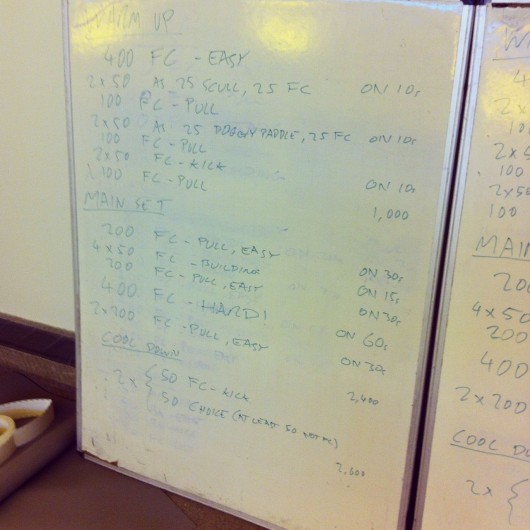 WARM UP
400 FC - EASY
2 x 50 AS 25 SCULL, 25 FC ON 10s
100 FC - PULL
2 x 50 AS 25 DOGGY PADDLE, 25 FC ON 10s
100 FC - PULL
2 x 50 FC - KICK ON 10s
100 FC - PULL
1,000
MAIN SET
200 FC - PULL, EASY ON 30s
4 x 50 FC - BUILDING ON 15s
200 FC - PULL, EASY ON 30s
400 FC - HARD! ON 60s
2 x 200 FC - PULL, EASY ON 30
2,400
COOL DOWN
2 x { 50 FC - KICK
50 CHOICE (AT LEAST 50 NOT FC)
2,600
W
4
2 x
10
2 x 5
100
2 x 50
100
MAIN
200
4 x 50
200
400
2 x 200
COOL DO
2 x {